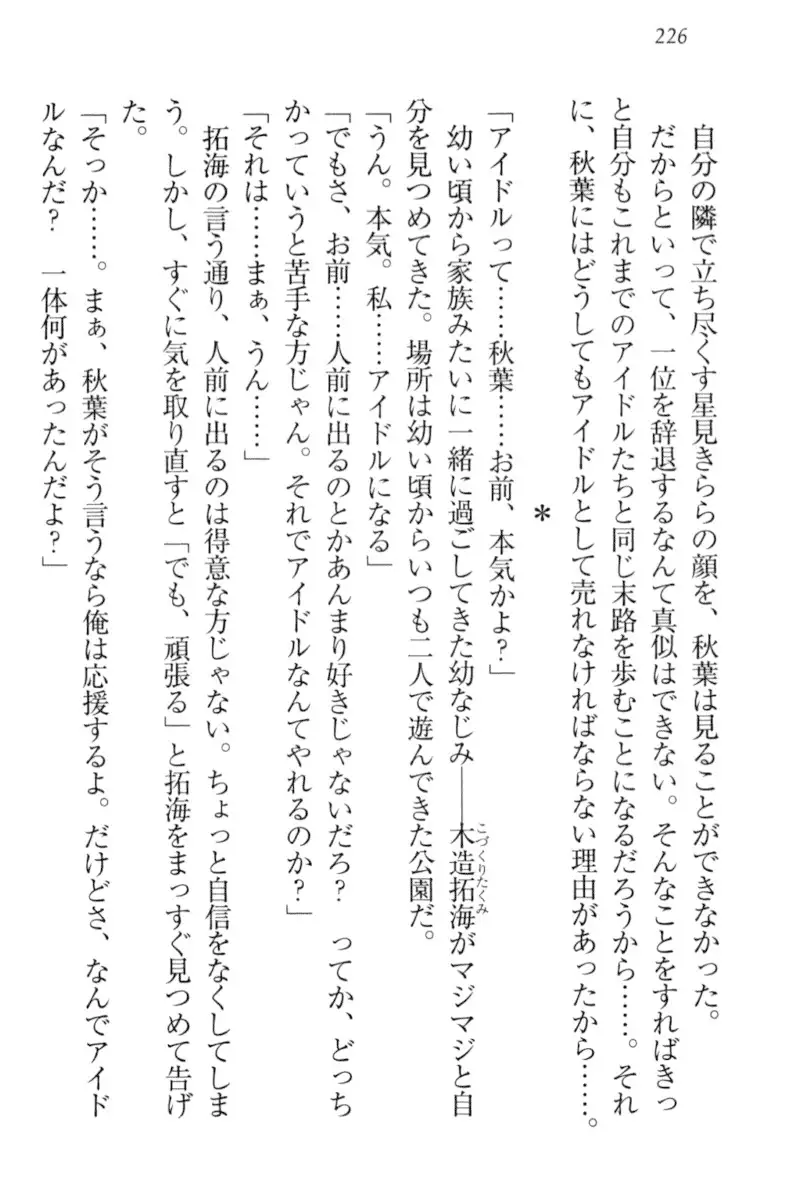 226
自分の隣で立ち尽くす星見きららの顔を、秋葉は見ることができなかった。
だからといって、一位を辞退するなんて真似はできない。そんなことをすればきっ
と自分もこれまでのアイドルたちと同じ末路を歩むことになるだろうから……。それ
に、秋葉にはどうしてもアイドルとして売れなければならない理由があったから……。
*
「アイドルって……秋葉……お前、本気かよ？」
幼い頃から家族みたいに一緒に過ごしてきた幼なじみ――木造拓海がマジマジと自
こづくりたくみ
分を見つめてきた。場所は幼い頃からいつも二人で遊んできた公園だ。
「うん。本気。私……アイドルになる」
「でもさ、お前……人前に出るのとかあんまり好きじゃないだろ？　ってか、どっち
かっていうと苦手な方じゃん。それでアイドルなんてやれるのか？」
「それは……まぁ、うん……」
拓海の言う通り、人前に出るのは得意な方じゃない。ちょっと自信をなくしてしま
う。しかし、すぐに気を取り直すと「でも、頑張る」と拓海をまっすぐ見つめて告げ
た。
「そっか……。まぁ、秋葉がそう言うなら俺は応援するよ。だけどさ、なんでアイド
ルなんだ？　一体何があったんだよ？」